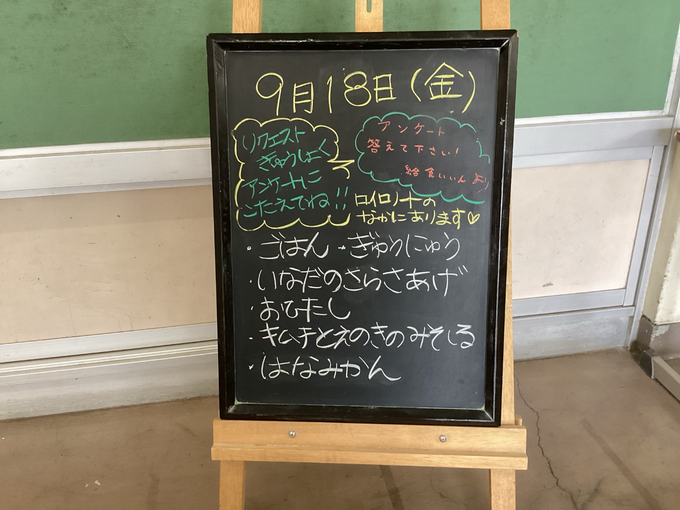 9月18日(金)
リクエスト
ぎゅうしょく
アンケートに
こたえてね!!
アンケート
答えて下さい!
給食いいんより
ロイロノートの
なかにあります♡
・ごはん ・ぎゅうにゅう
・いなだのさらさあげ
・おひたし
・キムチとえのきのみそしる
・はなみかん